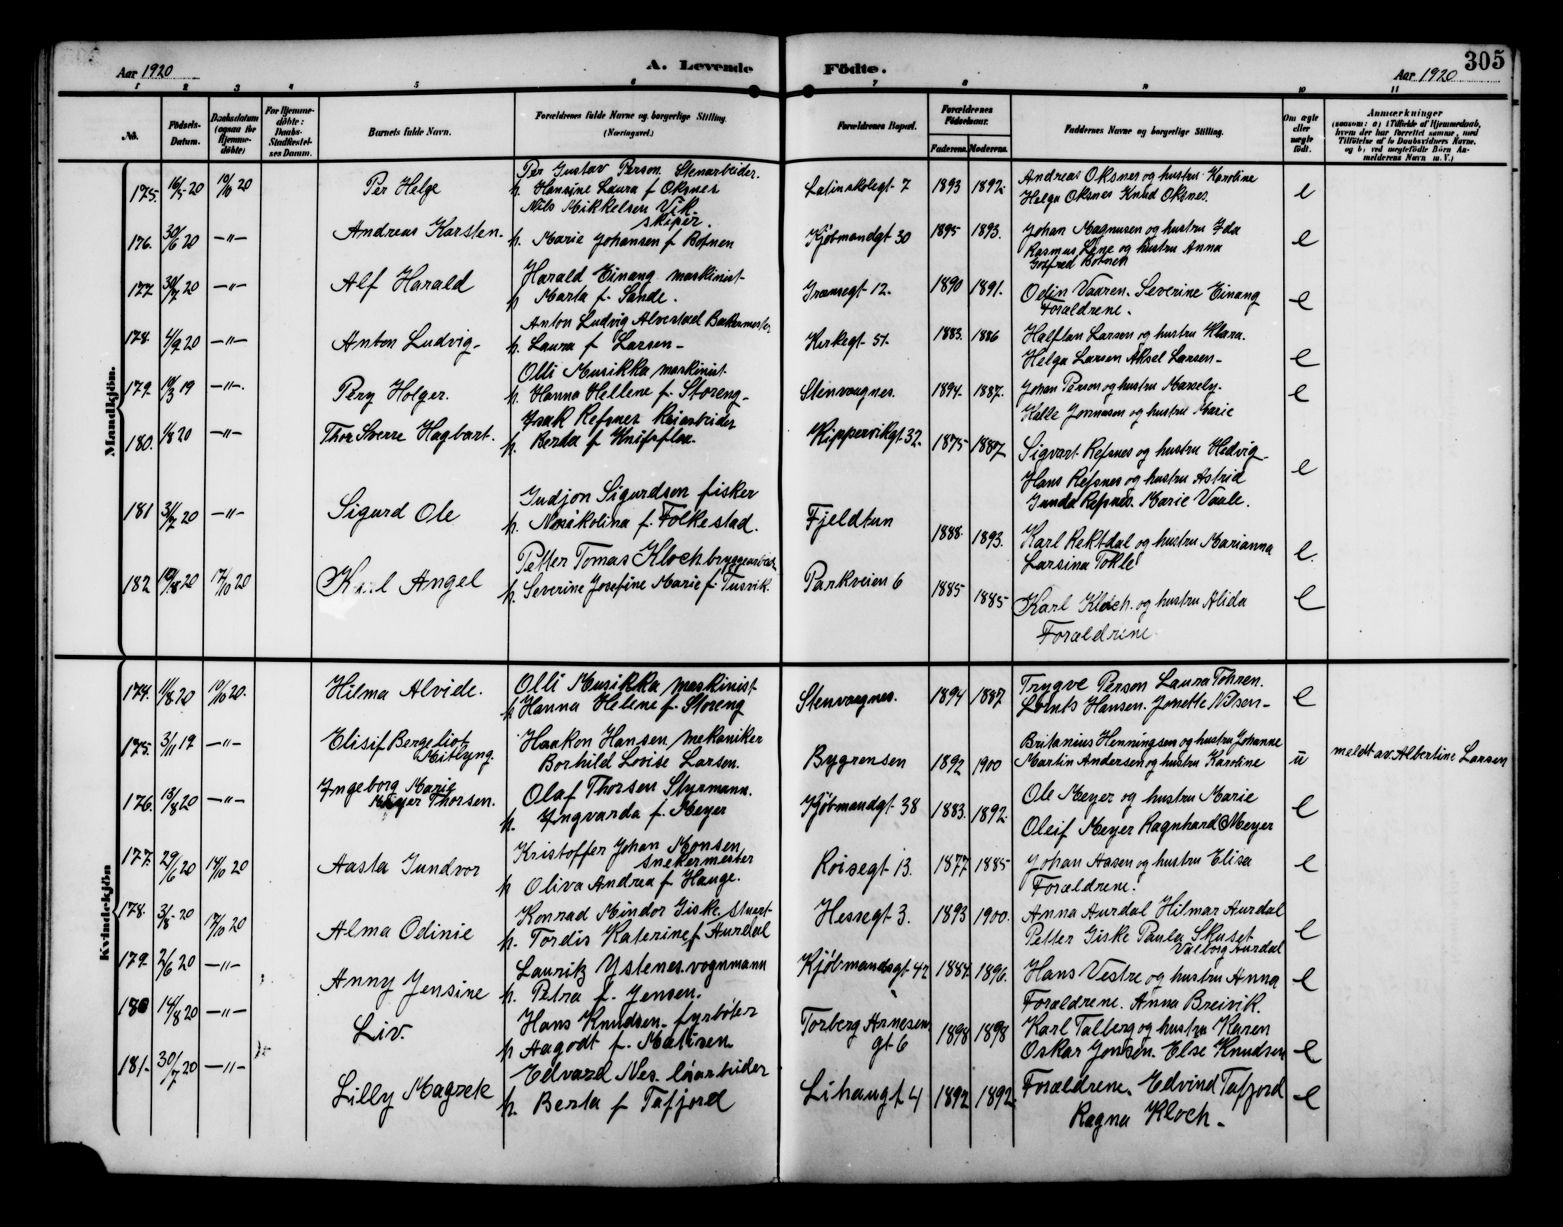 305
Aar 1920 A. Levende Fødte. Aar 1920
1 2 3 4 5 6 7 8 9 10 11
No. Fødsels-Datum. Daabsdatum (ogsaa før Hjemme-døbte) For Hjemme-døbte: Daabs-Stadfæstel-ses Datum. Barnets fulde Navn. Forældrenes fulde Navne og borgerlige Stilling. (Næringsvei.) Forældrenes Bopæl. Forældrenes Fødselsaar. Faderens. Moderens. Faddernes Navne og borgerlige Stilling. Om ægte eller uægte født. Anmærkninger
Mandkjøn.
175. 16/5-20 10/10 20 Per Helge Per Gustav Person. Stenarbeider. Latinskolegt 7 1893 1892. Andreas Oksnes og hustru Karoline e
h. Hansine Laura f Oksnes Helga Oksnes Knud Oksnes.
176. 30/6 20 —"— Andreas Karsten. Nils Mikkelsen Vik. skiper. Kjøbmandgt 30 1895 1893. Johan Magnusen og hustru Ida e
h. Marie Johansen f Botnen Rasmus Lene og hustru Anna
Gotfred Botnen
177 30/7 20 —"— Alf Harald Harald Einang maskinist Grænsegt 12. 1890 1891. Odin Vaaren. Severine Einang e
h Marta f. Sande. Forældrene.
178. 4/9 20 —"— Anton Ludvig Anton Ludvig Alvestad Bakermester Kirkegt 51. 1883. 1886 Halftan Larsen og hustru Klara. e
h. Laura f Larsen Helga Larsen Aksel Larsen
179. 10/3 19 —"— Pery Holger. Olli Musikka maskinist Stenvaagnes. 1894. 1887. Johan Person og hustru Marsely. e
h. Hanna Hellene f. Storeng Kalle Jonnasen og hustru Marie
180. 1/8 20 —"— Thor Sverre Hagbart. Isak Refsnes Kaiarbeider Kippervikgt 32. 1875 1887 Sigvart Refsnes og hustru Hedvig e
h. Berta f Knifsflaa Hans Refsnes og hustru Astrid
Gunda Refsnes. Marie Vaale.
181 31/7 20 —"— Sigurd Ole Gudjon Sigurdson fisker Fjeldtun 1888 1893. Karl Rektdal og hustru Marianna e.
h. Nesikolina f. Folkestad. Larsina Tokle
182 19/8 20 17/10 20 Karl Angel Petter Tomas Kloch bryggearbeid. Parkveien 6 1885 1885 Karl Kloch. og hustru Alida e
h. Severine Josefine Marie f. Tusvik. Forældrene
Kvindekjøn
174. 11/8 20 10/10 20. Hilma Alvide. Olli Musikka maskinist Stenvaagnes. 1894 1887 Trygve Person Laura Tohren. e
h Hanna Helene f. Storeng Lornts Hansen. Jonette Nilsen
175. 3/11 19 —"— Elisif Bergeliot Mitlyng. Haakon Hansen mekaniker Bygrensen 1892 1900 Britanius Henningsen og hustru Johanne u meldt av Albertine Larsen
Borhild Lovise Larsen. Martin Andersen og hustru Karoline
176. 13/8 20 —"— Ingeborg Marie Meyer Thorsen. Olaf Thorsen Styrmann. Kjøbmandgt 38 1883. 1892. Ole Meyer og hustru Marie e
h. Ingvarda f. Meyer Oleif Meyer Ragnhard Meyer
177. 29/6 20 14/10 20 Aasta Gundvor Kristoffer Johan Monsen snekermester Roisegt 13. 1877 1885 Johan Aasen og hustru Elisa e
h Oliva Andrea f Hauge. Forældrene.
178. 3/8-20 17/10 20 Alma Odinie Konrad Mindor Giske. Stuert Hessegt 3. 1893 1900. Anna Aurdal Hilmar Aurdal e
h. Tordis Katerine f Aurdal Petter Giske Paula Skuset
Valborg Aurdal
179. 2/6 20 —"— Anny Jensine Lauritz Ystenes. vognmann Kjøbmandsgt 42 1884 1896. Hans Vestre og hustru Anna e
h. Petra f. Jensen. Forældrene. Anna Breivik.
180 14/8 20 —"— Liv. Hans Knudsen fyrbøter Torberg Arnesens gt 6 1898 1898 Karl Talberg og hustru Karen e
h Aagodt f. Matisen Oskar Jensen. Else Knudsen
181. 30/7 20 —"— Lilly Magrete Edvard Nes løsarbeider Lihaugt 4 1892 1892. Forældrene. Edvind Tafjord e
h. Berta f Tafjord Ragna Kloch.